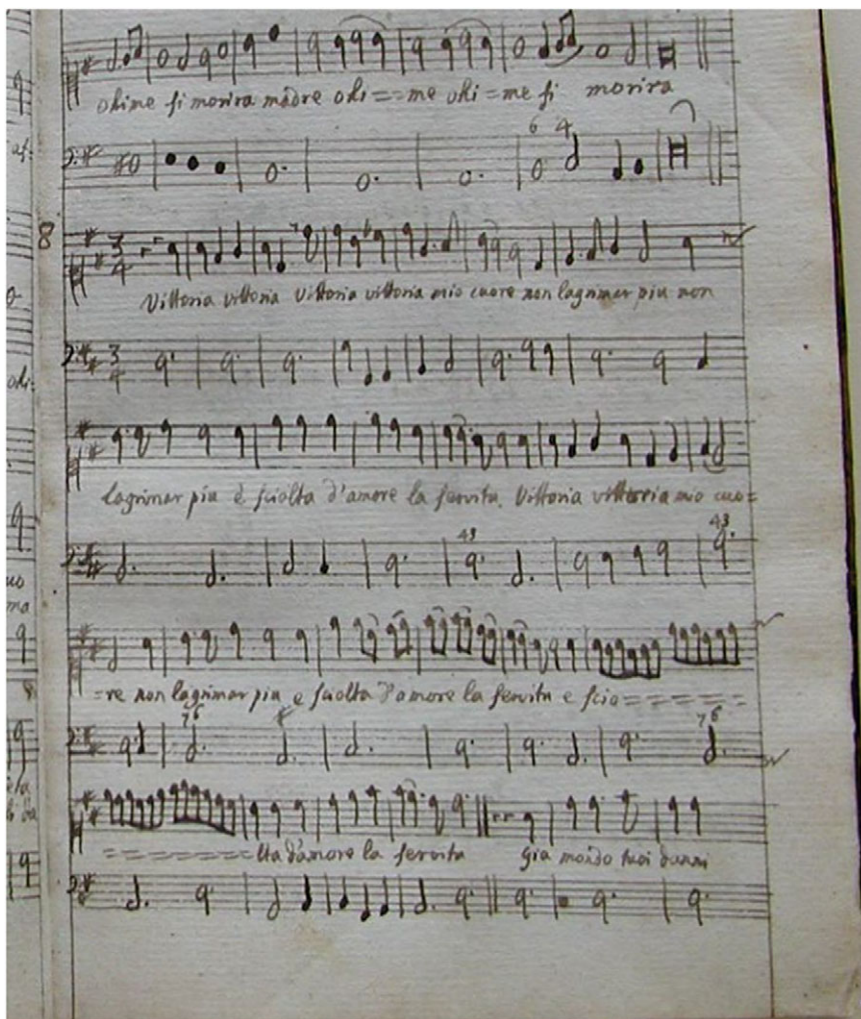 ohime si morira madre ohi=-=me ohi=me si morira
6 4
8
3 4
Vittoria vittoria Vittoria vittoria mio cuore non lagrimar piu non
3 4
lagrimar piu è sciolta d'amore la servitu. Vittoria vittoria mio cuo=
43 43
=re non lagrimar piu e sciolta d'amore la servitu e scio=====
76 76
=======lta d'amore la servitu Gia mondo tuoi danni